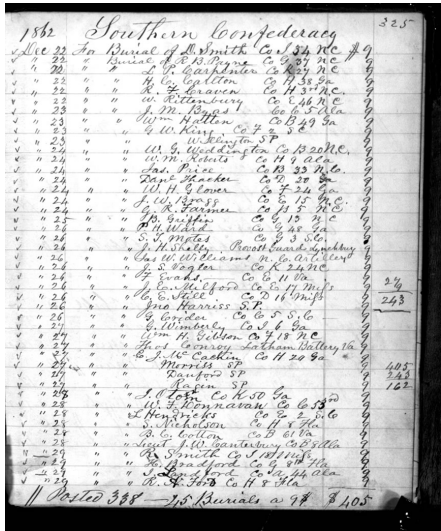 325
1862 Southern Confederacy
Dec 22 For Burial of D. Smith Co I 54 NC $ 9
" 22 " Burial of R B Payne Co G 37 NC 9
" 22 " " L P Carpenter Co K 27 NC 9
" 22 " " H C Carlton Co B 38 Ga 9
" 22 " " R. F Craven Co H 3rd NC. 9
" 22 " " W. Rittenbury Co E 46 NC 9
" 23 " " J. M. Co C 5 Ala 9
" 23 " " Wm Hatten Co B 49 Ga 9
" 23 " " G. W. King Co F 2 SC 9
" 23 " " Willington SP 9
" 24 " " W. G. Weddington Co B 20 N.C. 9
" 24 " " W. M. Roberts Co H 9 Ala 9
" 24 " " Jas. Price Co B 33 N.C. 9
" 24 " " Danl Thacker Co D 20 Ga 9
" 24 " " W. H. Glover Co F 24 Ga 9
" 24 " " J. W. Bragg Co E 15 N.C. 9
" 24 " " G. R. Farmer Co B 5 N.C. 9
" 25 " " B. Griffin Co G 13 N.C 9
" 26 " " P. H. Ward Co G 48 Ga 9
" 26 " " S. T. Motes Co G 3 S.C. 9
" 26 " " J. H. Shelly Provost Guard Lynchburg 9
" 26 " " Jas W. Williams N. C. Artillery 9
" 26 " " J. S. Vogler Co K 24 NC 9
" 26 " " F Evans Co E 11 Va 9
" 26 " " J. C. Milford Co E 17 Miss 9 27/9
" 26 " " C. E. Still Co D 16 Miss 9 243
" 26 " " Jno Harriss S.P. 9
" 26 " " G. Crider Co C 5 S.C 9
" 27 " " G. Wimberly Co I 6 Ga 9
" 27 " " Wm H. Gibson Co F 18 NC 9
" 27 " " Thos Conroy Latham Battery Va 9
" 27 " " C. J. McCachin Co H 20 Ga 9
" 27 " " Morriss SP 9 405
" 27 " " Danford SP 9 243
" 27 " " Ragen SP 9 162
" 28 " " J. Co K 50 Ga 9
" 28 " " W. F. Donnavan Co C 53rd 9
" 28 " " L Hendricks Co E 2 S.C 9
" 28 " " S. Nicholson Co H 8 Fla 9
" 28 " " B. C. Colton Co B 61 Va 9
" 28 " " Lieut J. W. Canterbury Co B 8 Ala 9
" 29 " " R. Smith Co I 18 Miss 9
" 29 " " H. Bradford Co G 8th Fla 9
" 29 " " J. Co A 44 Ala 9
" 29 " " R. A. Ford Co H 8 Fla 9
Posted 338 — 45 Burials a 9$ $ 405